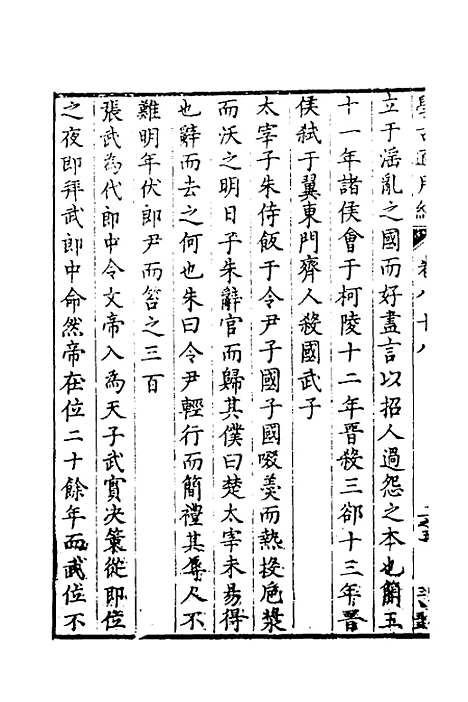 立于淫亂之國而好盡言以招人過怨之本也簡王
十一年諸侯會于柯陵十二年晉殺三郤十三年晉
侯弒于翼東門齊人殺國武子
太宰子朱侍飯于令尹子國子國啜羮而熱投巵漿
而沃之明日子朱辭官而歸其僕曰楚太宰未易得
也辭而去之何也朱曰令尹輕行而簡禮其辱人不
難明年伏郎尹而笞之三百
張武為代郎中令文帝入為天子武實决策從即位
之夜即拜武郎中命然帝在位二十餘年而武位不